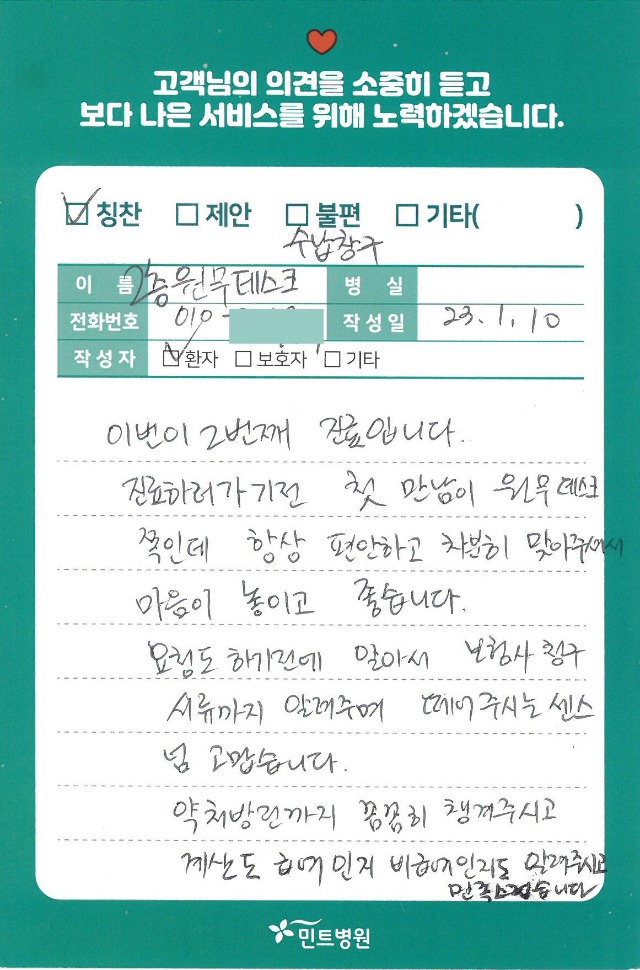 고객님의 의견을 소중히 듣고
보다 나은 서비스를 위해 노력하겠습니다.
칭찬 제안 불편 기타( )
수납창구
이 름 2층원무데스크 병 실
전화번호 010- 작성일 23.1.10
작성자 환자 보호자 기타
이번이 2번째 진료입니다.
진료하러가기전 첫 만남이 원무데스크
쪽인데 항상 편안하고 차분히 맞아주셔서
마음이 놓이고 좋습니다.
요청도 하기전에 알아서 보험사 청구
서류까지 알려주며 떼어주시는 센스
넘 고맙습니다.
약처방전까지 꼼꼼히 챙겨주시고
계산도 급여인지 비급여인지도 알려주시고
만족스럽습니다
민트병원